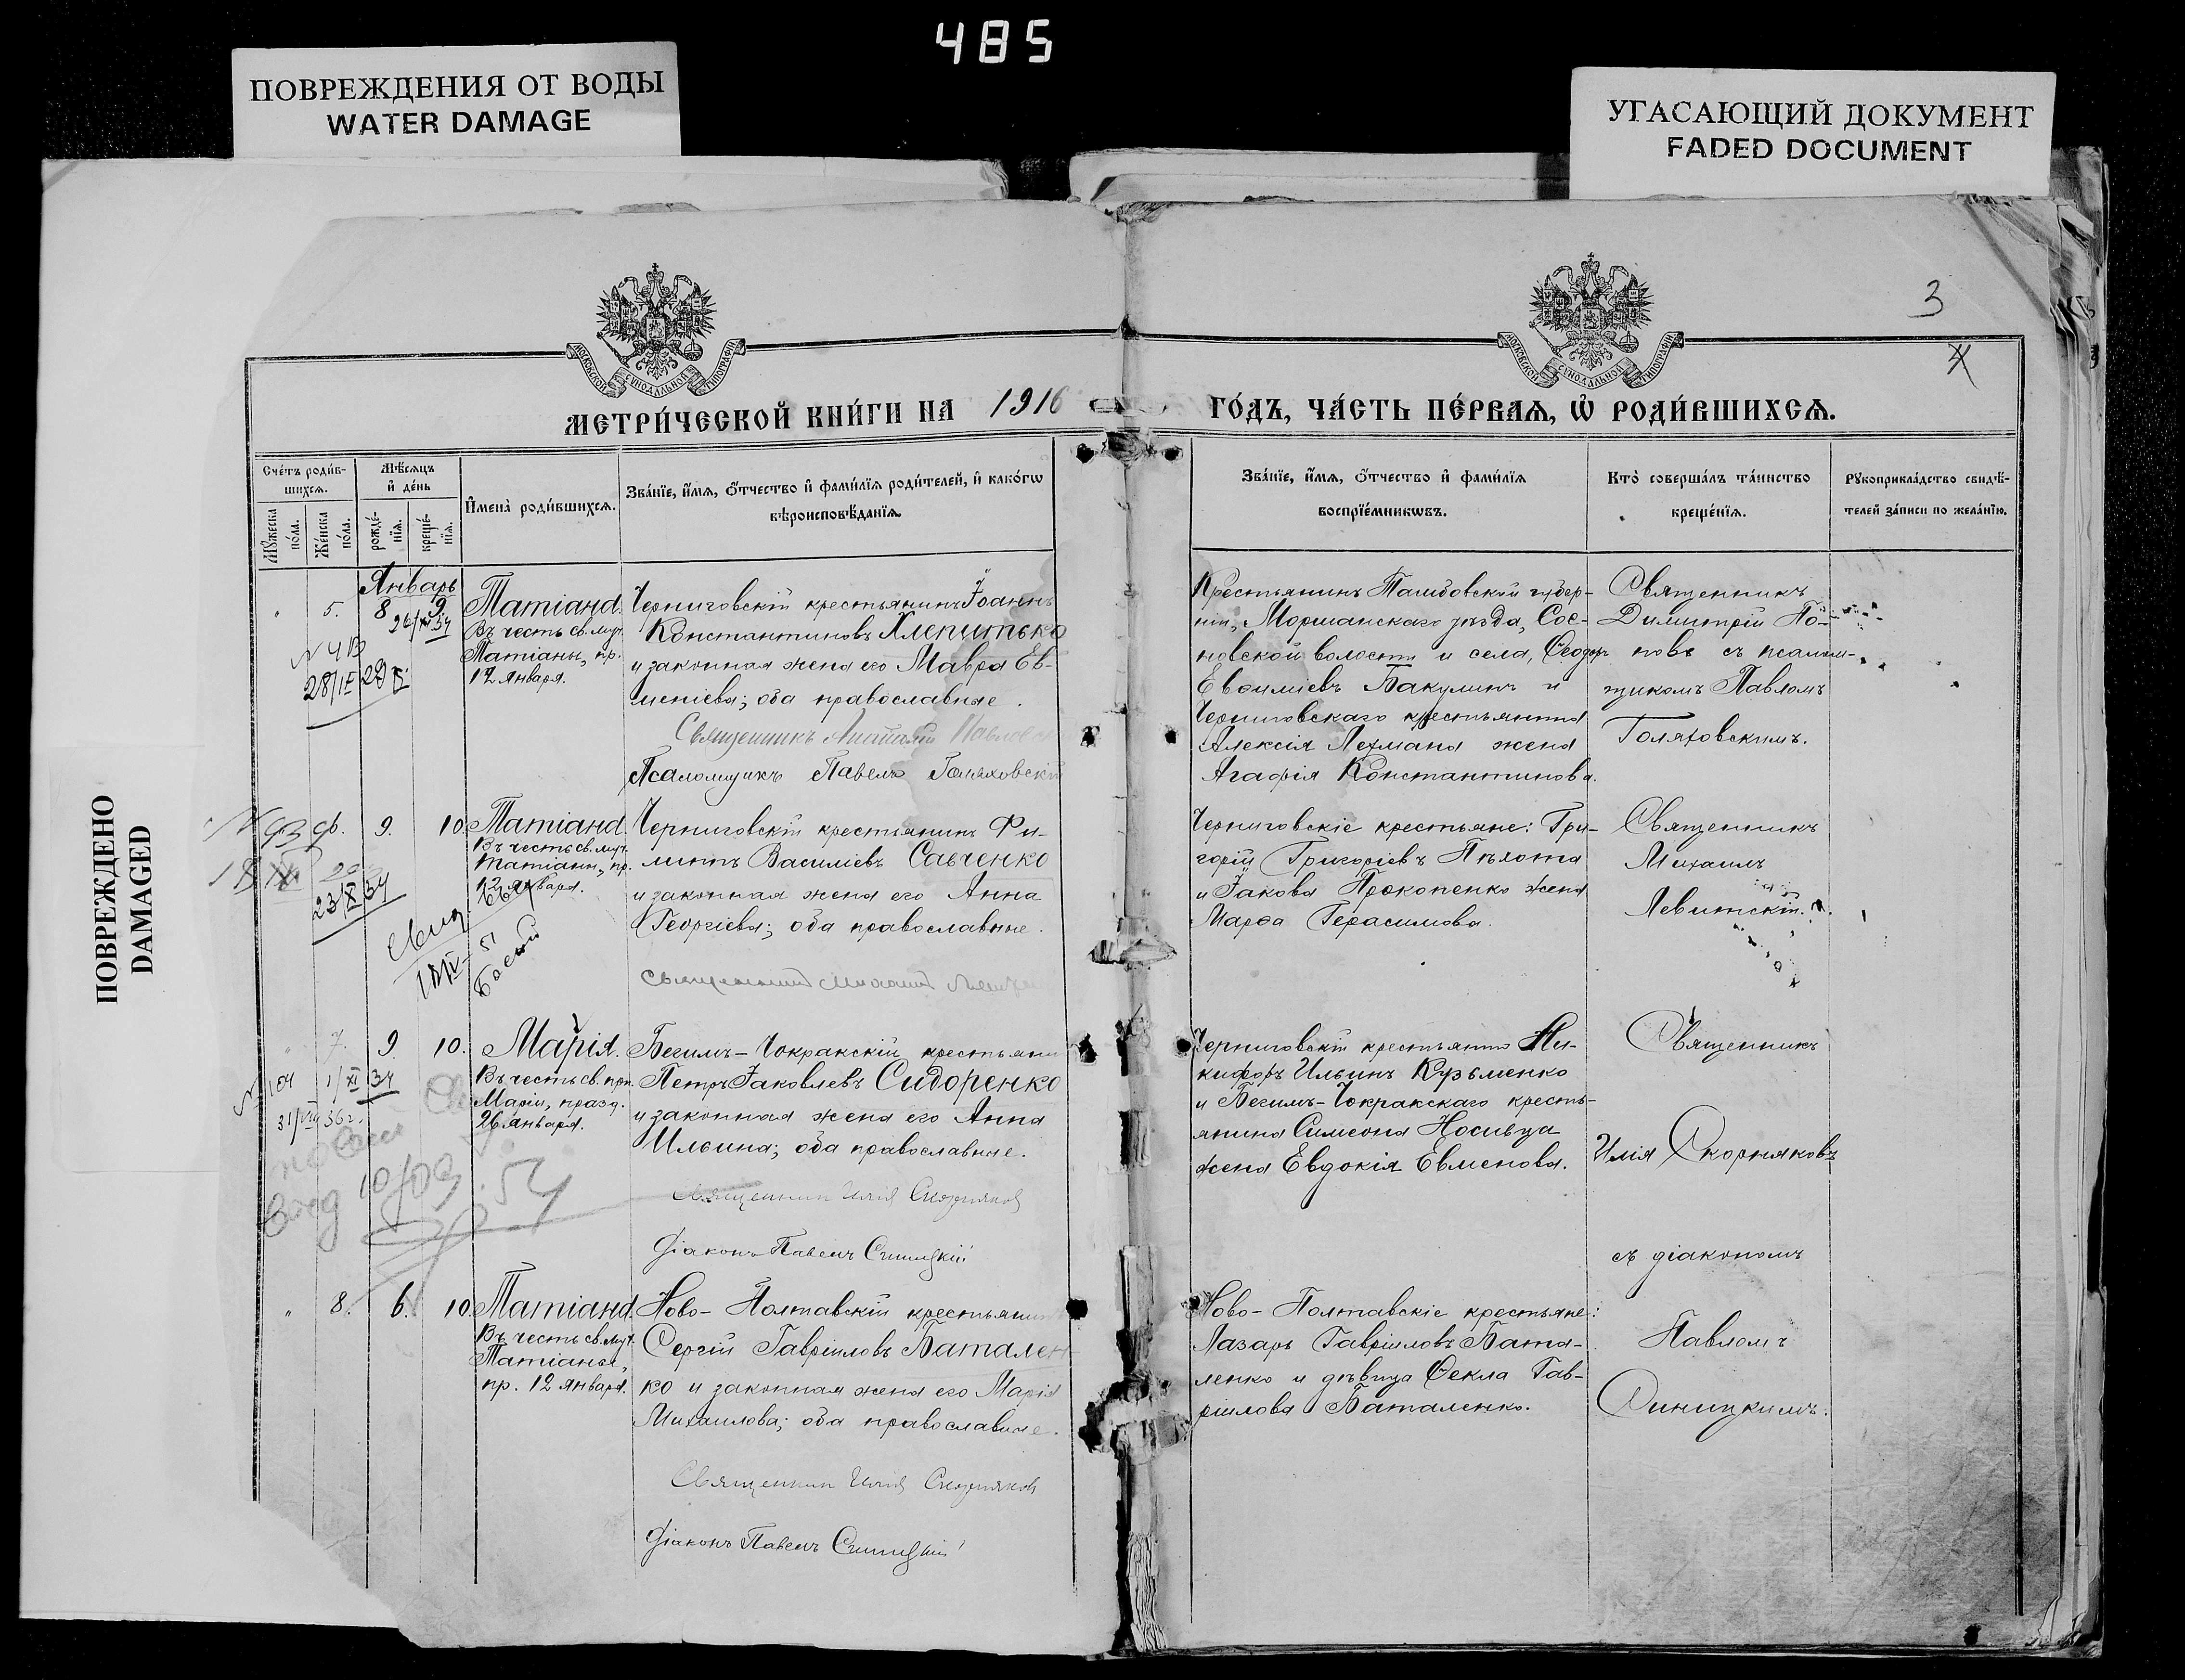 485
ПОВРЕЖДЕНИЯ ОТ ВОДЫ
WATER DAMAGE
УГАСАЮЩИЙ ДОКУМЕНТ
FADED DOCUMENT
ПОВРЕЖДЕНО
DAMAGED
3
4
МОСКОВСКОЙ СѴНОДАЛЬНОЙ ТИПОГРАФІИ
МОСКОВСКОЙ СѴНОДАЛЬНОЙ ТИПОГРАФІИ
МЕТРИ́ЧЕСКОЙ КНИ́ГИ НА 1916
ГО́ДЪ, ЧА́СТЬ ПЕ́РВАѦ, Ѡ҆ РОДИ́ВШИХСѦ.
Сче́тъ роди́в-
шихсѧ.
Мѣ́сѧцъ
и҆ де́нь
Мꙋ́жеска по́ла.
Же́нска по́ла.
рожде́-
нїѧ.
креще́-
нїѧ.
И҆мена̀ роди́вшихсѧ.
Зва́нїе, и҆́мѧ, ѻ҆́тчество и҆ фами́лїѧ роди́телей, и҆ како́гѡ
вѣроисповѣ́данїѧ.
Зва́нїе, и҆́мѧ, ѻ҆́тчество и҆ фами́лїѧ
воспрїе́мникѡвъ.
Кто̀ соверша́лъ та́инство
креще́нїѧ.
Рꙋкоприкла́дство свидѣ́-
телей за́писи по жела́нїю.
Январь
" 5. 8 9.
Татіана.
Въ честь св. муч.
Татіаны, пр.
12 января.
Черниговскій крестьянинъ Іоаннъ
Константиновъ Хлепитько
и законная жена его Мавра Ев-
меніева; оба православные.
Священникъ
Псаломщикъ Павелъ Голяховскій
Крестьянинъ Тамбовской губер-
ніи, Моршанскаго уѣзда, Сос-
новской волости и села, Ѳеодоръ
Евѳиміевъ Бакулинъ и
Черниговскаго крестьянина
Алексія Лехмана жена
Агафія Константинова.
Священникъ
Димитрій По-
повъ съ псалом-
щикомъ Павломъ
Голяховскимъ.
9. 10.
23/XI 34
Татіана.
Въ честь св. муч.
Татіаны, пр.
12 января.
Черниговскій крестьянинъ Фи-
липпъ Василіевъ Савченко
и законная жена его Анна
Георгіева; оба православные.
Священникъ Михаилъ
Черниговскіе крестьяне: Гри-
горій Григоріевъ Пѣхота
и Іакова Прокопенко жена
Марѳа Герасимова.
Священникъ
Михаилъ
Левитскій.
" 7. 9. 10.
1/XI 34
Марія.
Въ честь св. прп.
Маріи, празд.
26 января.
Бегимъ-Чокракскій крестьянин
Петръ Іаковлевъ Сидоренко
и законная жена его Анна
Ильина; оба православные.
Священникъ Илія Скорняковъ
Діаконъ Павелъ Синицкій
Черниговскій крестьянинъ Ни-
кифоръ Ильинъ Кузьменко
и Бегимъ-Чокракскаго кресть-
янина Симеона Носивца
жена Евдокія Евменова.
Священникъ
Илія Скорняковъ
съ діакономъ
" 8. 6. 10.
Татіана.
Въ честь св. муч.
Татіаны,
пр. 12 января.
Ново-Полтавскій крестьянин
Сергій Гавріиловъ Батален-
ко и законная жена его Марія
Михаилова; оба православные.
Священникъ Илія Скорняковъ
Діаконъ Павелъ Синицкій
Ново-Полтавскіе крестьяне:
Лазарь Гавріиловъ Бата-
ленко и дѣвица Ѳекла Гав-
ріилова Баталенко.
Павломъ
Синицкимъ.